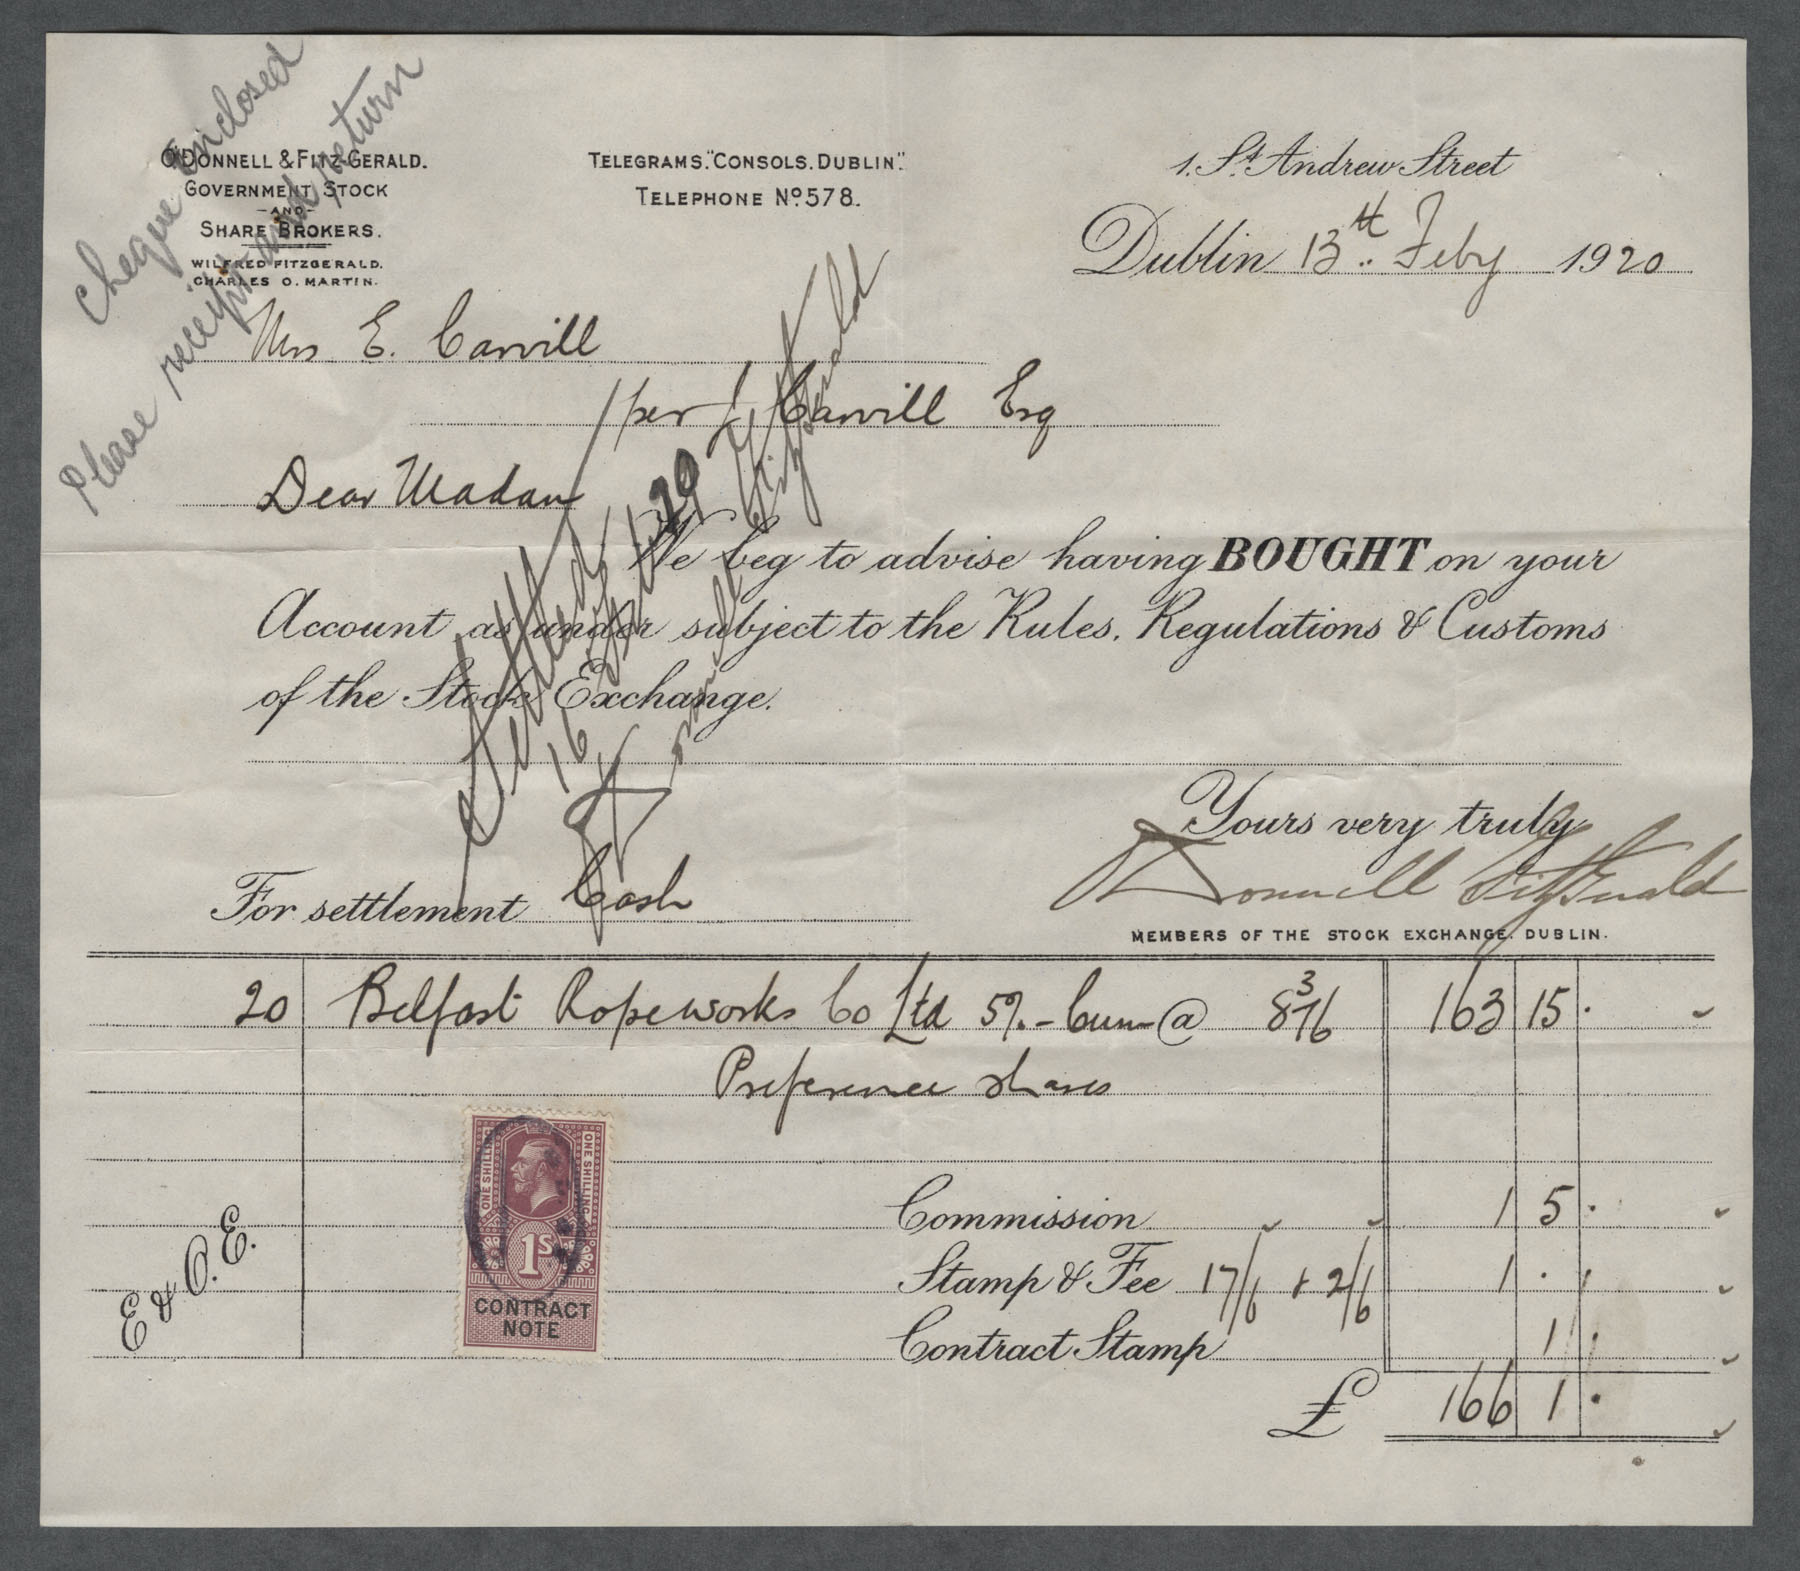 Cheque enclosed
Please receipt and return
O'DONNELL & FITZ-GERALD.
GOVERNMENT STOCK
-AND-
SHARE BROKERS.
WILFRED FITZGERALD.
CHARLES O. MARTIN.
TELEGRAMS."CONSOLS. DUBLIN".
TELEPHONE No. 578.
1. St. Andrew Street
Dublin 13th.. Feby 1920
Mrs E. Carvill
per J Carvill Esq
Dear Madam
We beg to advise having BOUGHT on your
Account as under subject to the Rules. Regulations & Customs
of the Stock Exchange.
Settled
16 Feb 1920
O'Donnell Fitzgerald
Yours very truly
O'Donnell FitzGerald
MEMBERS OF THE STOCK EXCHANGE. DUBLIN.
For settlement Cash
20 Belfast Ropeworks Co Ltd 5% - Cum @ 8 3/16 163 15 .
Preference shares
ONE SHILLING ONE SHILLING
1S
CONTRACT
NOTE
E & O. E.
Commission 1 5 .
Stamp & Fee 17/6 + 2/6 1 . .
Contract Stamp 1 .
£ 166 1 .